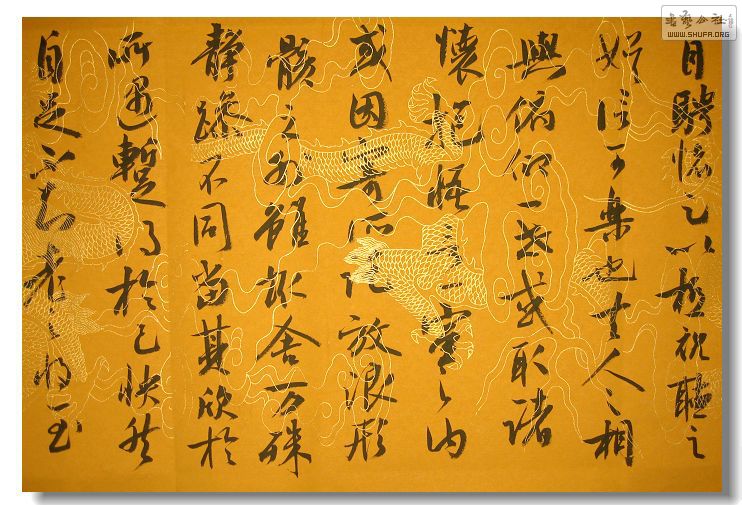 目騁懷足以極視聽之
娛信可樂也夫人之相
與俯仰一世或取諸
懷抱悟言一室之內
或因寄所托放浪形
骸之外雖取舍萬殊
靜躁不同當其欣於
所遇暫得於己快然
自足不知老之將至
書藝公社
WWW.SHUFA.ORG